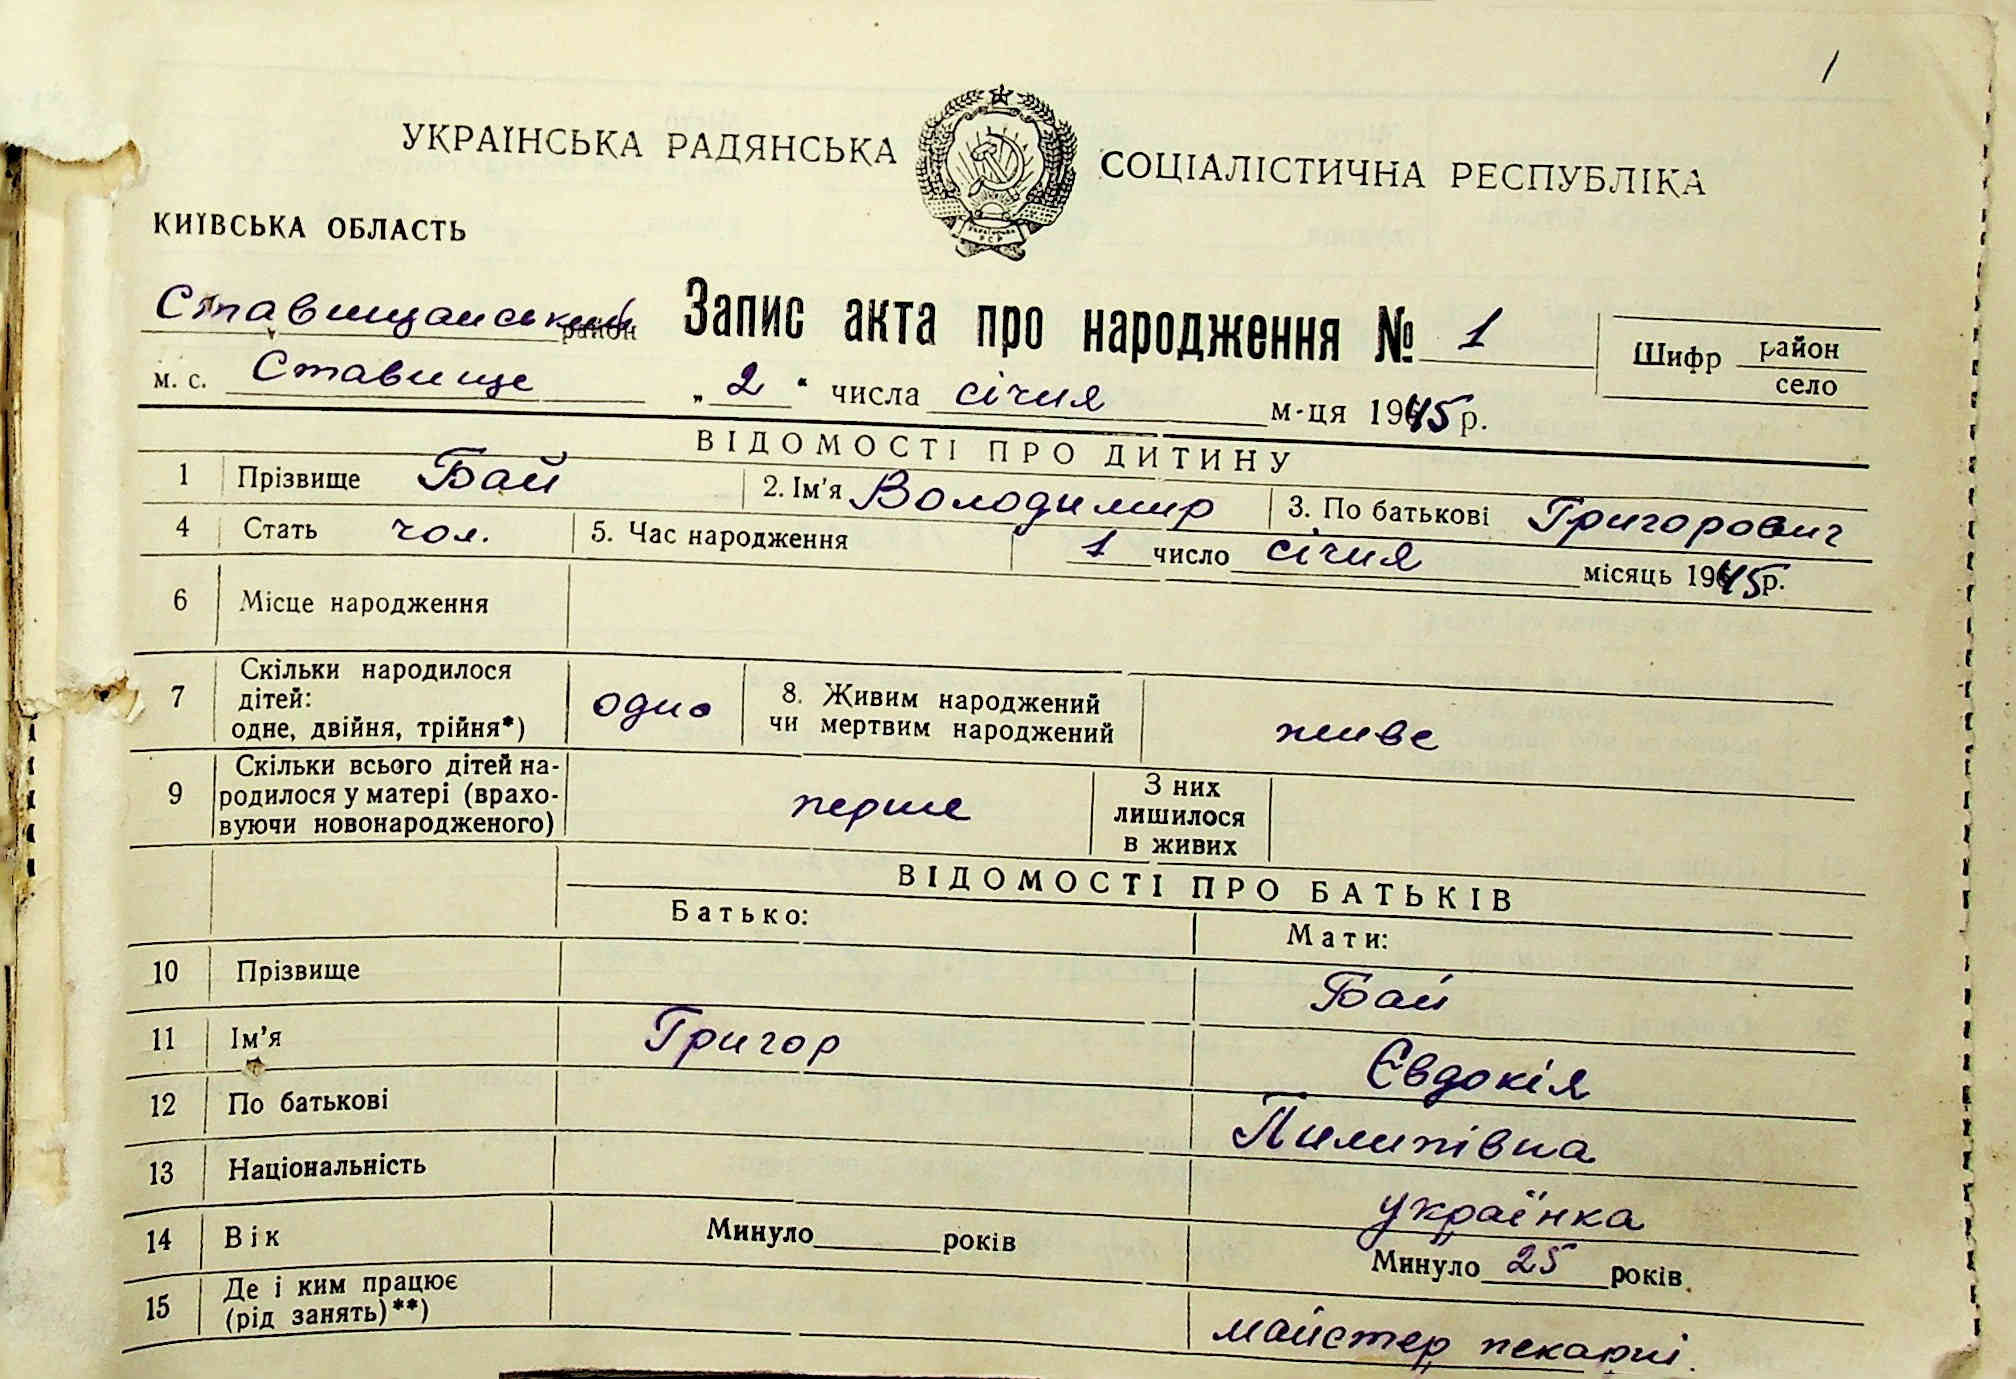 1
УКРАЇНСЬКА РАДЯНСЬКА СОЦІАЛІСТИЧНА РЕСПУБЛІКА
КИЇВСЬКА ОБЛАСТЬ
Ставищанський район Запис акта про народження № 1 Шифр район
село
м. с. Ставище „ 2 “ числа січня м-ця 1945 р.
ВІДОМОСТІ ПРО ДИТИНУ
1 Прізвище Бай 2. Ім'я Володимир 3. По батькові Григорович
4 Стать чол. 5. Час народження 1 число січня місяць 1945 р.
6 Місце народження
7 Скільки народилося
дітей:
одне, двійня, трійня*) одно 8. Живим народжений
чи мертвим народжений живе
9 Скільки всього дітей на-
родилося у матері (врахо-
вуючи новонародженого) перше З них
лишилося
в живих
ВІДОМОСТІ ПРО БАТЬКІВ
Батько: Мати:
10 Прізвище Бай
11 Ім'я Григор Євдокія
12 По батькові Пилипівна
13 Національність українка
14 Вік Минуло років Минуло 25 років
15 Де і ким працює
(рід занять)**) майстер пекарні.